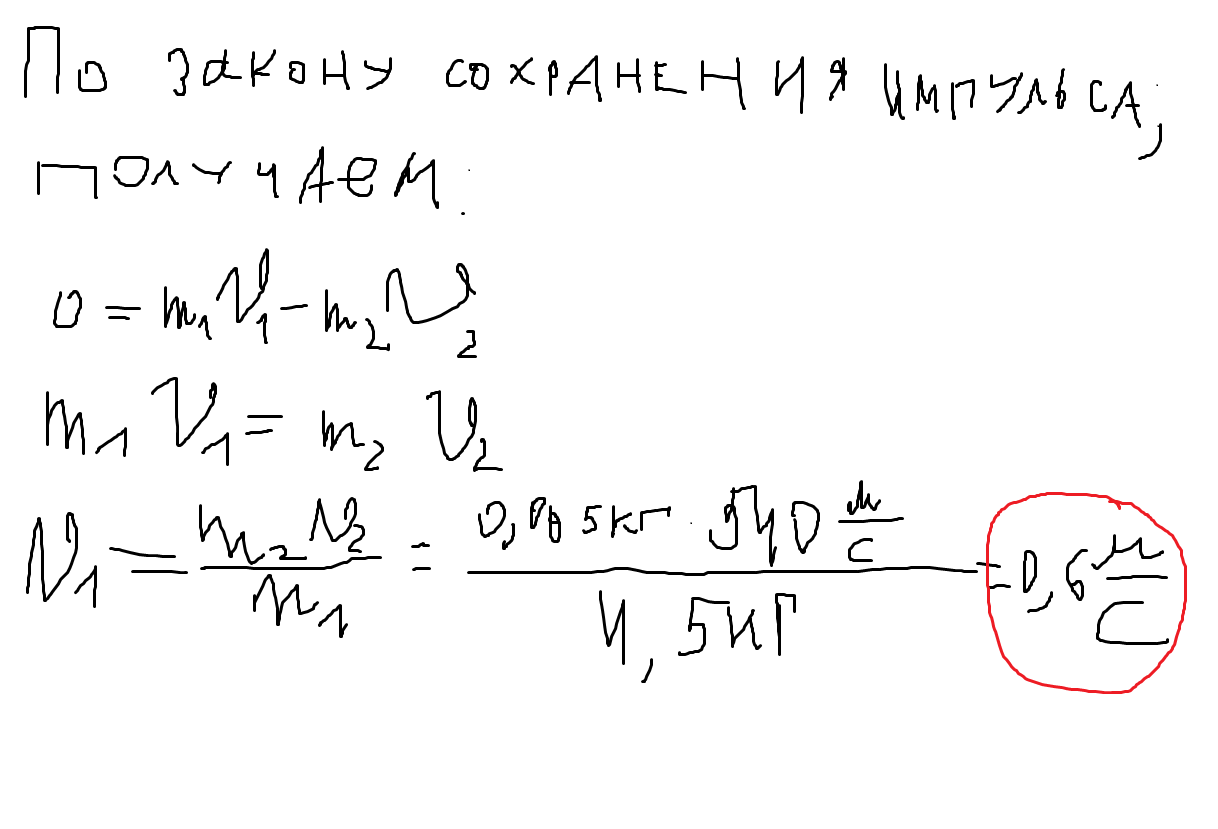 По закону сохранения импульса,
получаем:
0 = m₁v₁ - m₂v₂
m₁ v₁ = m₂ v₂
v₁ = m₂v₂/m₁ = 0,005кг · 540 м/с / 4,5кг = 0,6 м/с